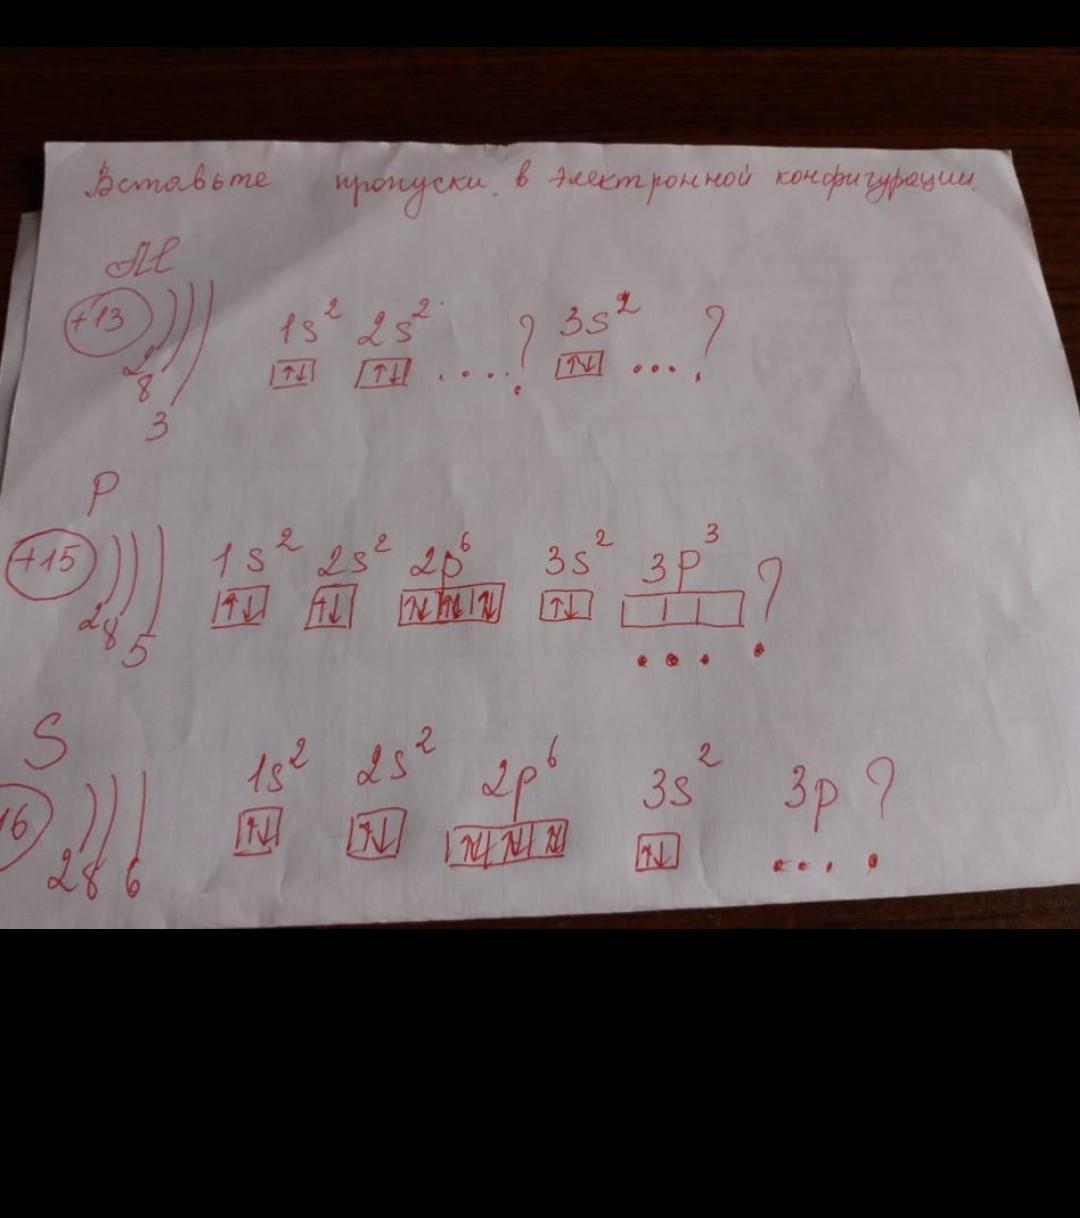 Вставьте пропуски в электронной конфигурации.
Al
+13 ) ) ) 1s² 2s² ....? 3s² ...?
↑↓ ↑↓ ↑↓
2 8 3
P
+15 ) ) ) 1s² 2s² 2p⁶ 3s² 3p³ ?
↑↓ ↑↓ ↑↓ ↑↓ ↑↓ ↑↓
2 8 5
...
S
16 ) ) ) 1s² 2s² 2p⁶ 3s² 3p ?
↑↓ ↑↓ ↑↓ ↑↓ ↑↓ ↑↓ ...
2 8 6